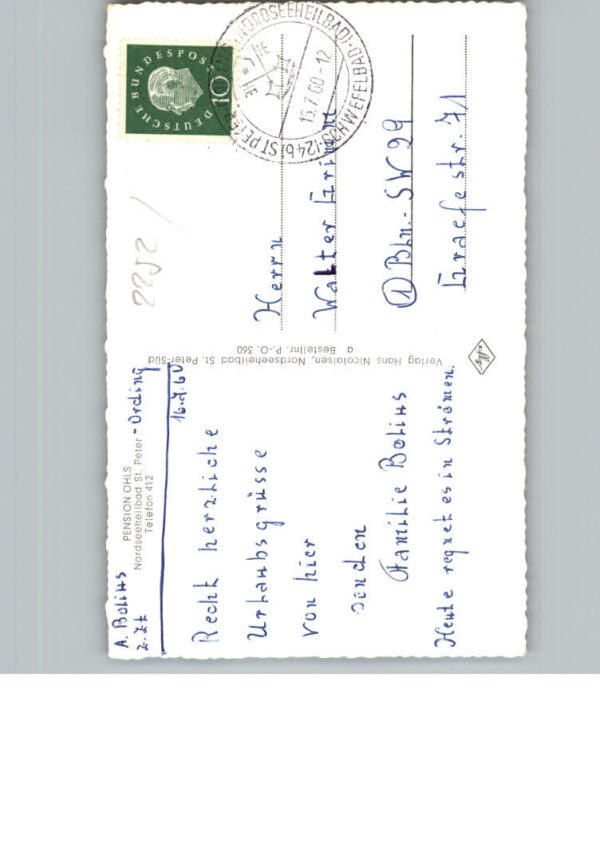 A. Bolius
z.Zt
PENSION OHLS
Nordseeheilbad St. Peter - Ording
Telefon 412
16.7.60
Recht herzliche
Urlaubsgrüsse
von hier
senden
Familie Bolius
Heute regnet es in Strömen.
Verlag Hans Nicolaisen, Nordseeheilbad St. Peter-Süd
a Bestellnr. P.-O. 360
2252 /
DEUTSCHE BUNDESPOST
10
(NORDSEEHEILBAD)
SCHWEFELBAD
(24b) ST PETER
16.7.60-12
Herrn
Walter Grimm
1 Bln.- SW 29
Graefestr. 71